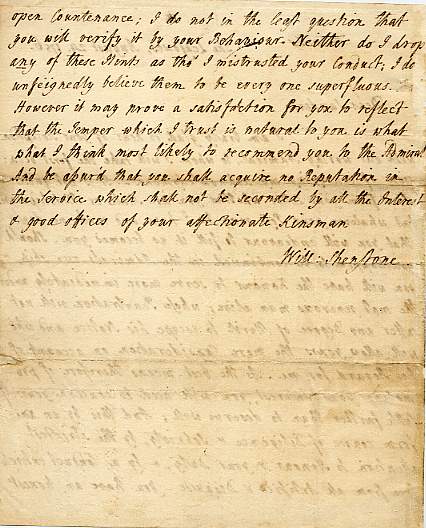 open Countenance; I do not in the least question that
you will verify it by your Behaviour. Neither do I drop
any of these Hints as tho' I mistrusted your Conduct; I do
unfeignedly believe them to be every one superfluous.
However it may prove a satisfaction for you to reflect
that the Temper which I trust is natural to you is what
what I think most likely to recommend you to the Admiral
And be assurd that you shall acquire no Reputation in
the Service which shall not be seconded by all the Interest
& good offices of your affectionate Kinsman
Will: Shenstone